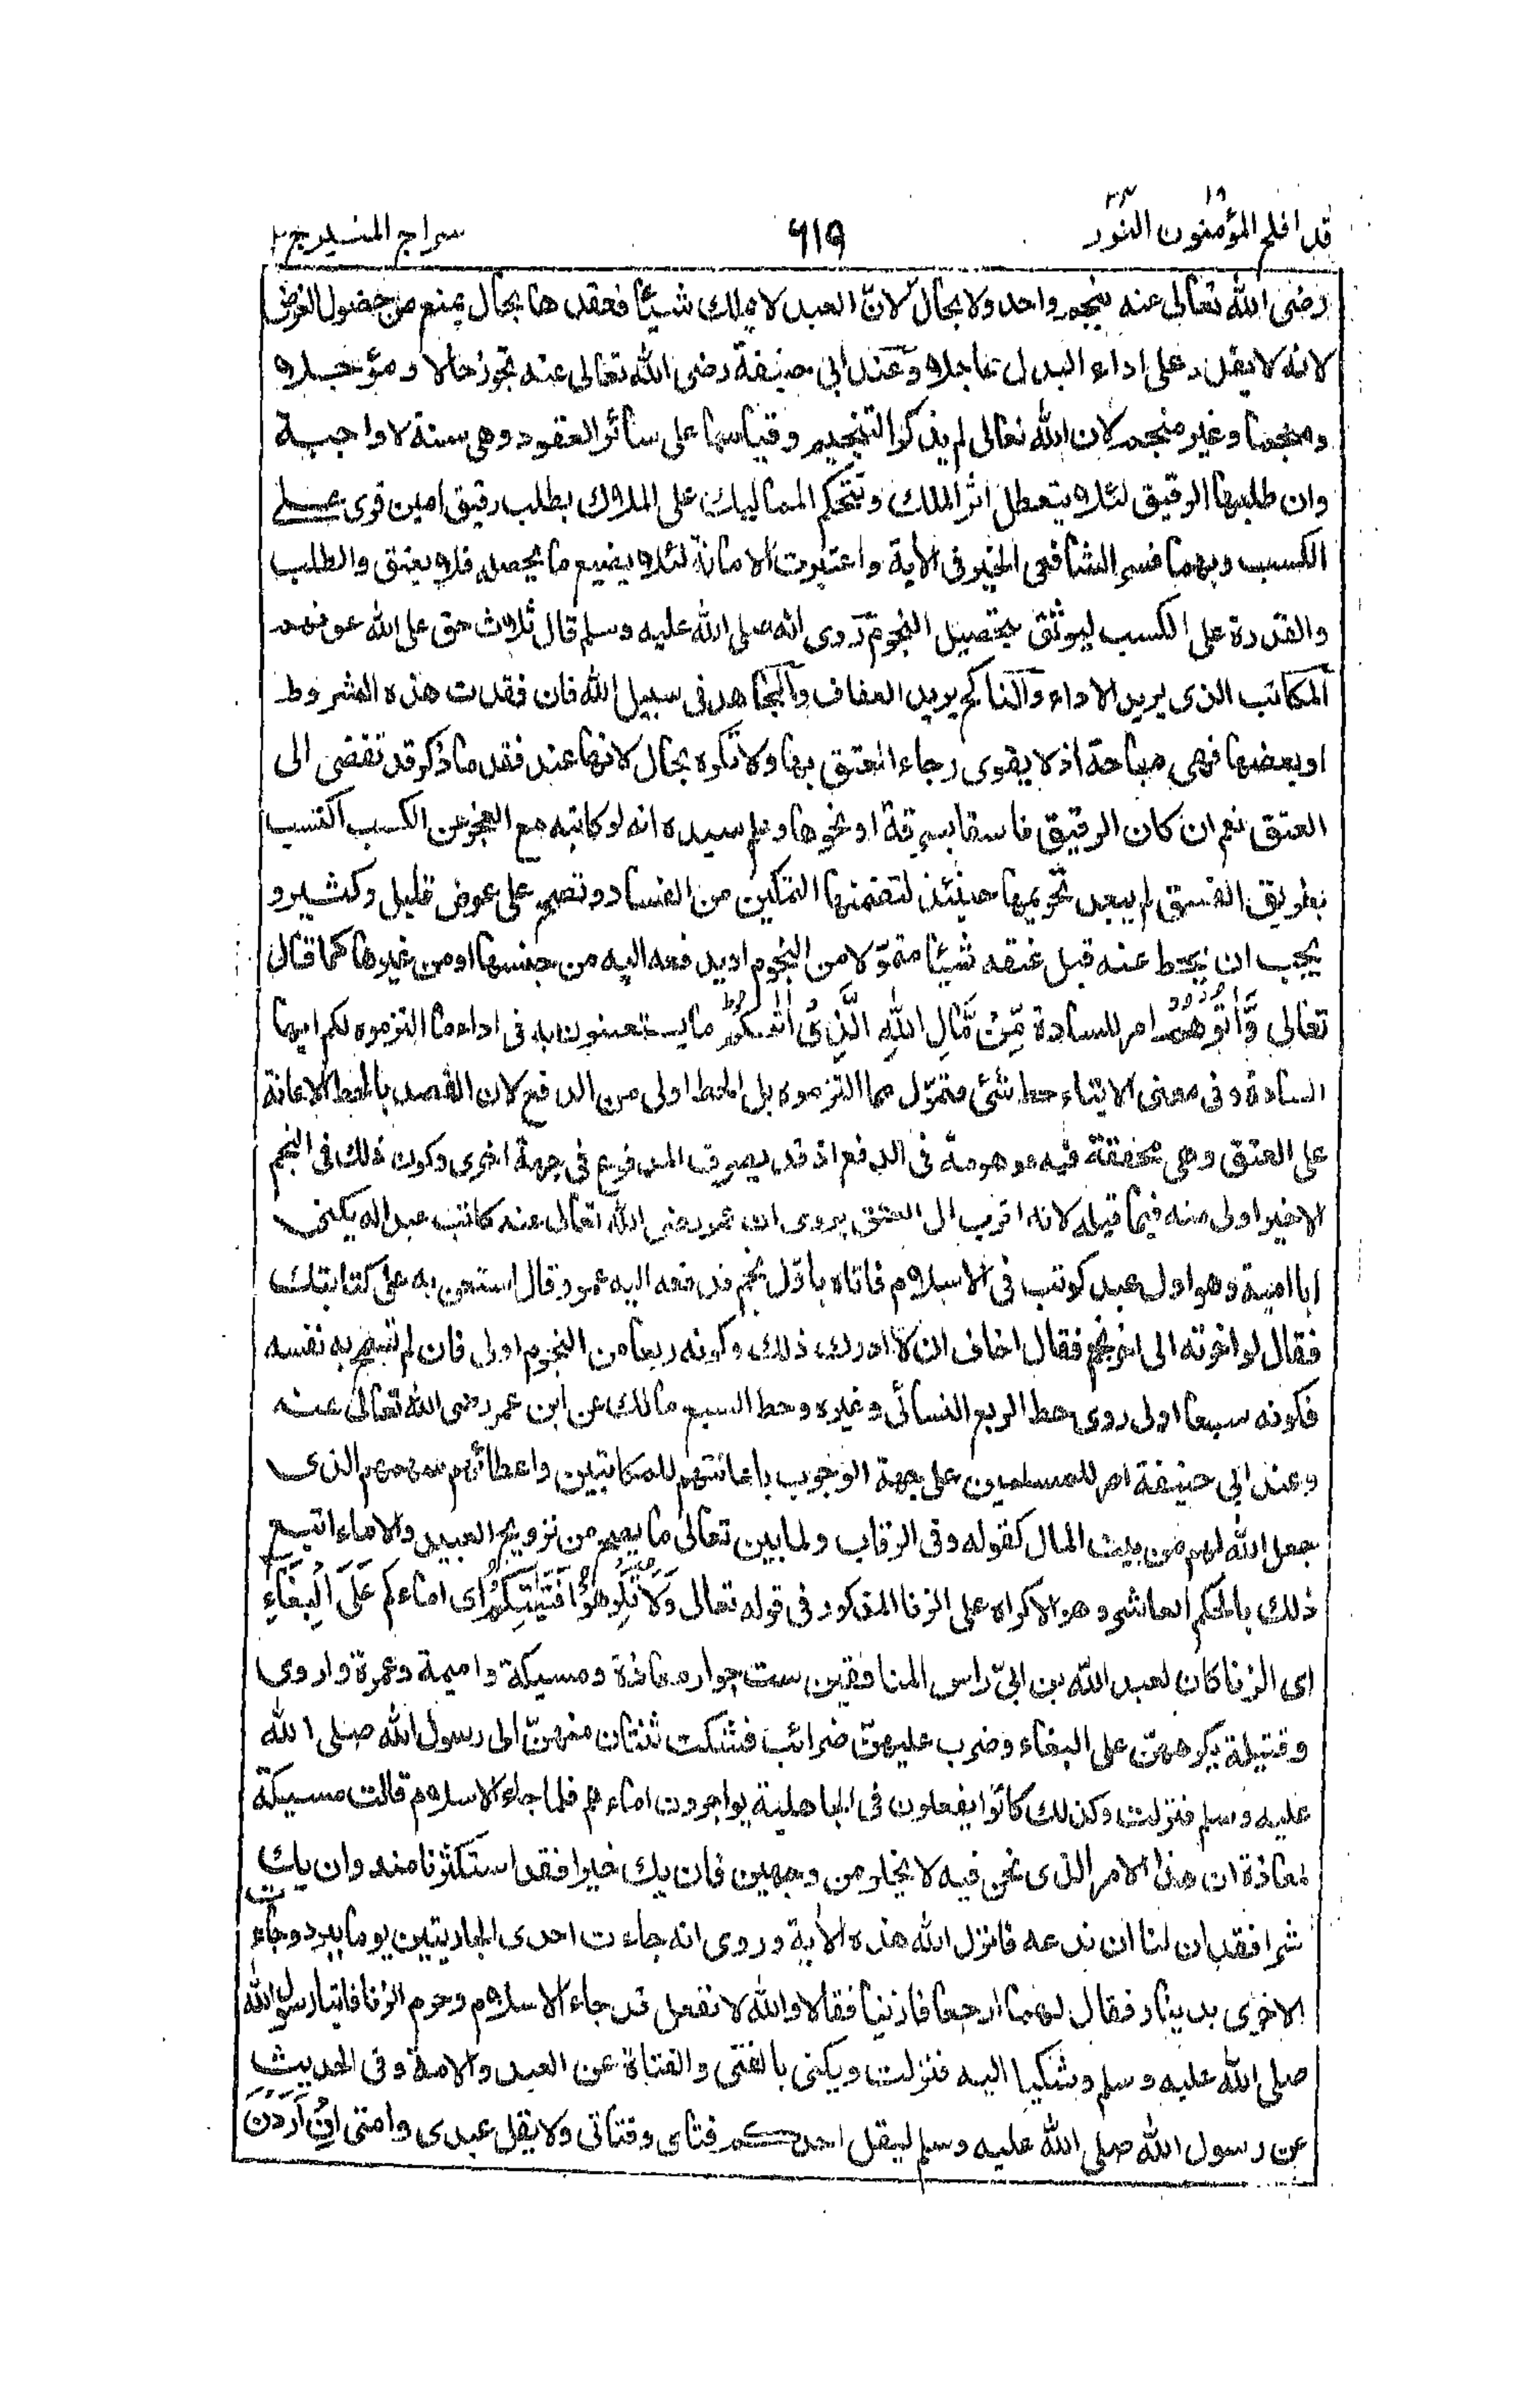 قد افلح المؤمنون ١٨ النور ٢٤
٦١٩
سراج المنير ج ٢
رضى الله تعالى عنه بنجم واحد ولا بحال لانّ العبد لا يملك شيئا فعقدها بحال يمنع من حصول الغرض
لانه لا يقدر على اداء البدل عاجلا وعند ابى حنيفة رضى الله تعالى عنه تجوز حالا ومؤجلا
ومنجما وغير منجم لان الله تعالى لم يذكر التنجيم وقياسا على سائر العقود وهى سنة لا واجبة
وان طلبها الرقيق لئلا يتعطل اثر الملك وتتحكم المماليك على الملاك بطلب رقيق امين قوى على
الكسب وبهما فسر الشافعى الخير فى الاية واعتبرت الامانة لئلا يضيع ما يحصله فلا يعتق والطلب
والقدرة على الكسب ليوثق بتحصيل النجوم روى انه صلى الله عليه وسلم قال ثلاث حق على الله عونهم
المكاتب الذى يريد الاداء والناكح يريد العفاف والمجاهد فى سبيل الله فان فقدت هذه الشروط
او بعضها فهى مباحة اذ لا يقوى رجاء العتق بها ولا تكره بحال لانها عند فقد ما ذكر قد تفضى الى
العتق نعم ان كان الرقيق فاسقا بسرقة او نحوها وعلم سيده انه لو كاتبه مع العجز عن الكسب اكتسب
بطريق الفسق لم يبعد تحريمها حينئذ لتضمنها التمكين من الفساد وتصح على عوض قليل وكثير و
يجب ان يحط عنه قبل عتقه شيئا متموّلا من النجوم او يدفعه اليه من جنسها او من غيرها كما قال
تعالى وَّاٰتُوْهُمْ امر للسادة مِّنْ مَّالِ اللّٰهِ الَّذِىْٓ اٰتٰىكُمْ ط ما يستعينون به فى اداء ما التزموه لكم ايها
السادة وفى معنى الايتاء حط شئ متموّل مما التزموه بل الحط اولى من الدفع لان القصد بالحط الاعانة
على العتق وهى محققة فيه موهومة فى الدفع اذ قد يصرف المدفوع فى جهة اخرى وكون ذلك فى النجم
الاخير اولى منه فيما قبله لانه اقرب الى العتق يروى ان عمر رضى الله تعالى عنه كاتب عبدا له يكنى
ابا امية وهو اول عبد كوتب فى الاسلام فاتاه باوّل نجم فدفعه اليه عمر وقال استعن به على كتابتك
فقال لو اخرته الى اخر نجم فقال اخاف ان لا ادرك ذلك وكونه ربعا من النجوم اولى فان لم تسمح به نفسه
فكونه سبعا اولى روى حط الربع النسائى وغيره وحط السبع مالك عن ابن عمر رضى الله تعالى عنه
وعند ابى حنيفة امر للمسلمين على جهة الوجوب باعانتهم للمكاتبين واعطائهم سهمهم الذى
جعل الله لهم من بيت المال كقوله وفى الرقاب ولما بين تعالى ما يصح من تزويج العبيد والاماء اتبع
ذلك بالحكم العاشر وهو الاكراه على الزنا المذكور فى قوله تعالى وَلَا تُكْرِهُوْا فَتَيٰتِكُمْ اى اماءكم عَلَى الْبِغَآءِ
اى الزنا كان لعبد الله بن ابىّ راس المنافقين ست جوار معاذة ومسيكة واميمة وعمرة واروى
وقتيلة يكرههنّ على البغاء وضرب عليهنّ ضرائب فشكت ثنتان منهنّ الى رسول الله صلى الله
عليه وسلم فنزلت وكذلك كانوا يفعلون فى الجاهلية يواجرون اماءهم فلما جاء الاسلام قالت مسيكة
لمعاذة ان هذا الامر الذى نحن فيه لا يخلو من وجهين فان يك خيرا فقد استكثرنا منه وان يك
شرا فقد ان لنا ان ندعه فانزل الله هذه الاية وروى انه جاءت احدى الجاريتين يوما ببرد وجاءت
الاخرى بدينار فقال لهما ارجعا فازنيا فقالا والله لا نفعل قد جاء الاسلام وحرم الزنا فاتيا رسول الله
صلى الله عليه وسلم وشكيا اليه فنزلت ويكنى بالفتى والفتاة عن العبد والامة وفى الحديث
عن رسول الله صلى الله عليه وسلم ليقل احدكم فتاى وفتاتى ولا يقل عبدى وامتى اِنْ اَرَدْنَ